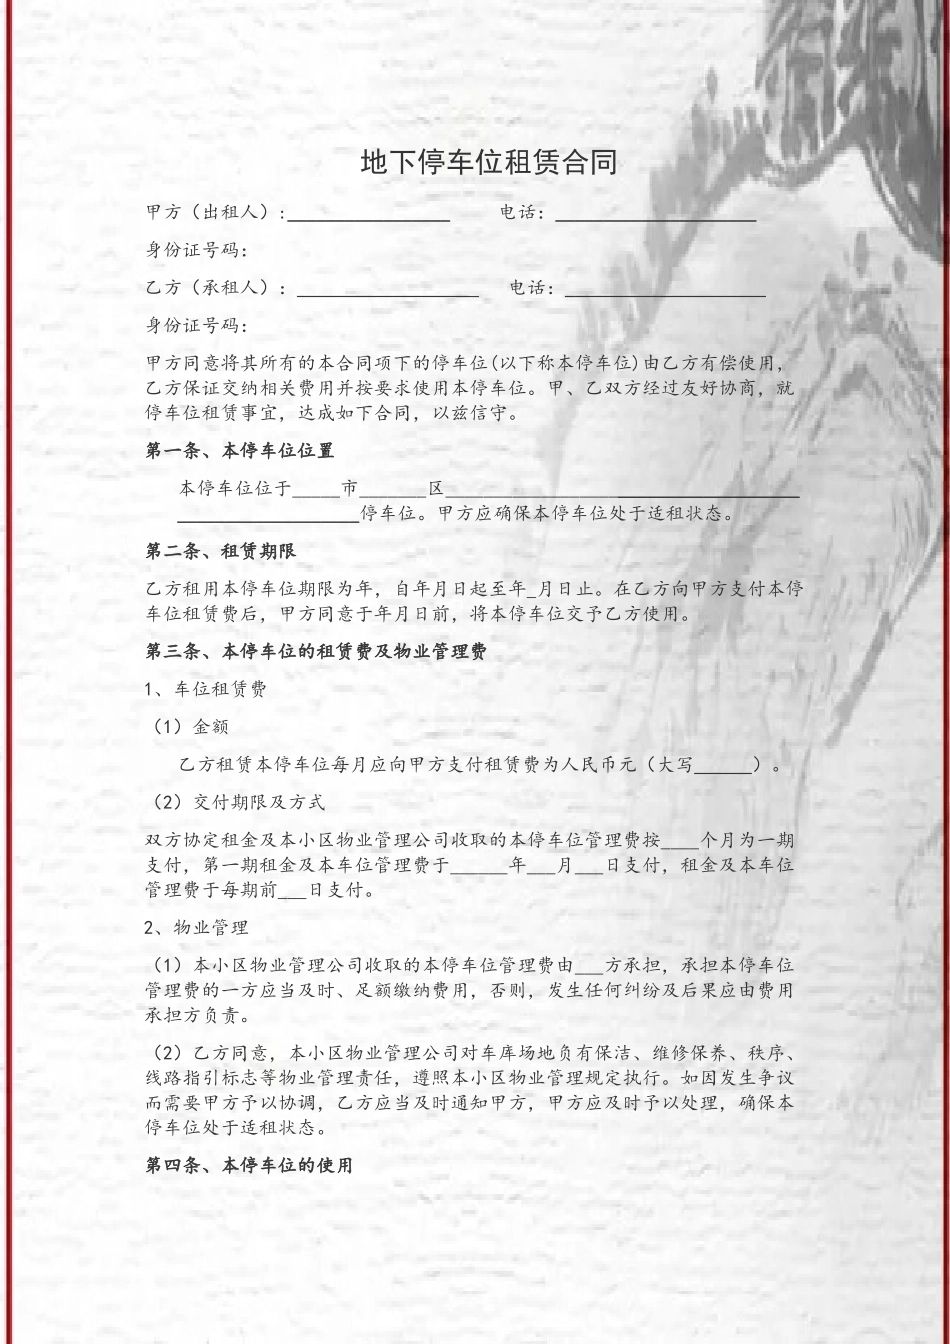 地下停车位租赁合同
甲方（出租人）:_________________ 电话：_____________________
身份证号码：
乙方（承租人）：___________________ 电话：_____________________
身份证号码：
甲方同意将其所有的本合同项下的停车位(以下称本停车位)由乙方有偿使用，
乙方保证交纳相关费用并按要求使用本停车位。甲、乙双方经过友好协商，就
停车位租赁事宜，达成如下合同，以兹信守。
第一条、本停车位位置
本停车位位于_____市_______区_____________________________________
___________________停车位。甲方应确保本停车位处于适租状态。
第二条、租赁期限
乙方租用本停车位期限为年，自年月日起至年_月日止。在乙方向甲方支付本停
车位租赁费后，甲方同意于年月日前，将本停车位交予乙方使用。
第三条、本停车位的租赁费及物业管理费
1、车位租赁费
（1）金额
乙方租赁本停车位每月应向甲方支付租赁费为人民币元（大写______）。
（2）交付期限及方式
双方协定租金及本小区物业管理公司收取的本停车位管理费按____个月为一期
支付，第一期租金及本车位管理费于______年___月___日支付，租金及本车位
管理费于每期前___日支付。
2、物业管理
（1）本小区物业管理公司收取的本停车位管理费由___方承担，承担本停车位
管理费的一方应当及时、足额缴纳费用，否则，发生任何纠纷及后果应由费用
承担方负责。
（2）乙方同意，本小区物业管理公司对车库场地负有保洁、维修保养、秩序、
线路指引标志等物业管理责任，遵照本小区物业管理规定执行。如因发生争议
而需要甲方予以协调，乙方应当及时通知甲方，甲方应及时予以处理，确保本
停车位处于适租状态。
第四条、本停车位的使用